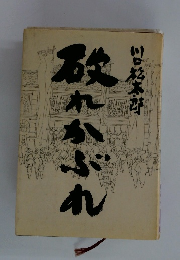 破れかぶれ
川口松太郎